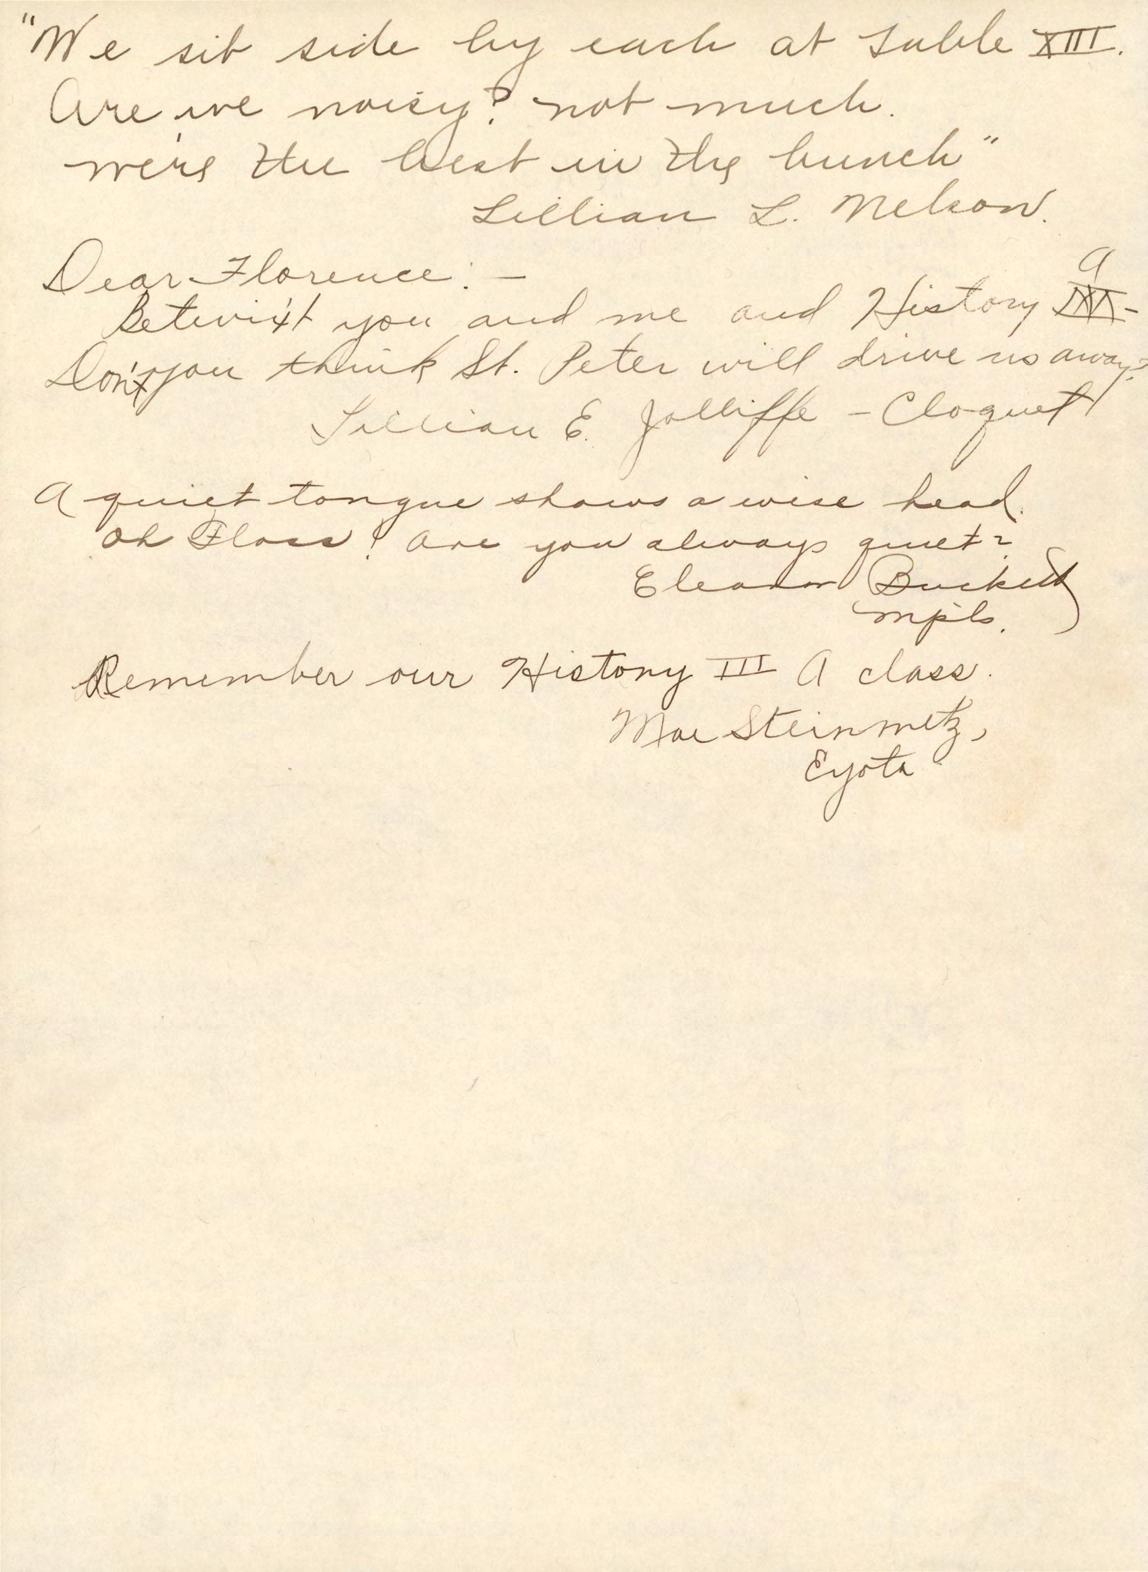 "We sit side by each at table XIII.
Are we noisy? not much.
we're the best in the bunch"
Lillian L. Nelson.
Dear Florence: —
Betwixt you and me and History A
Don't you think St. Peter will drive us away?
Lillian E. Jolliffe - Cloquet
A quiet tongue shows a wise head.
Oh Floss! Are you always quiet?
Eleanor
Mpls.
Remember our History III A class.
Mae Steinmetz,
Eyota